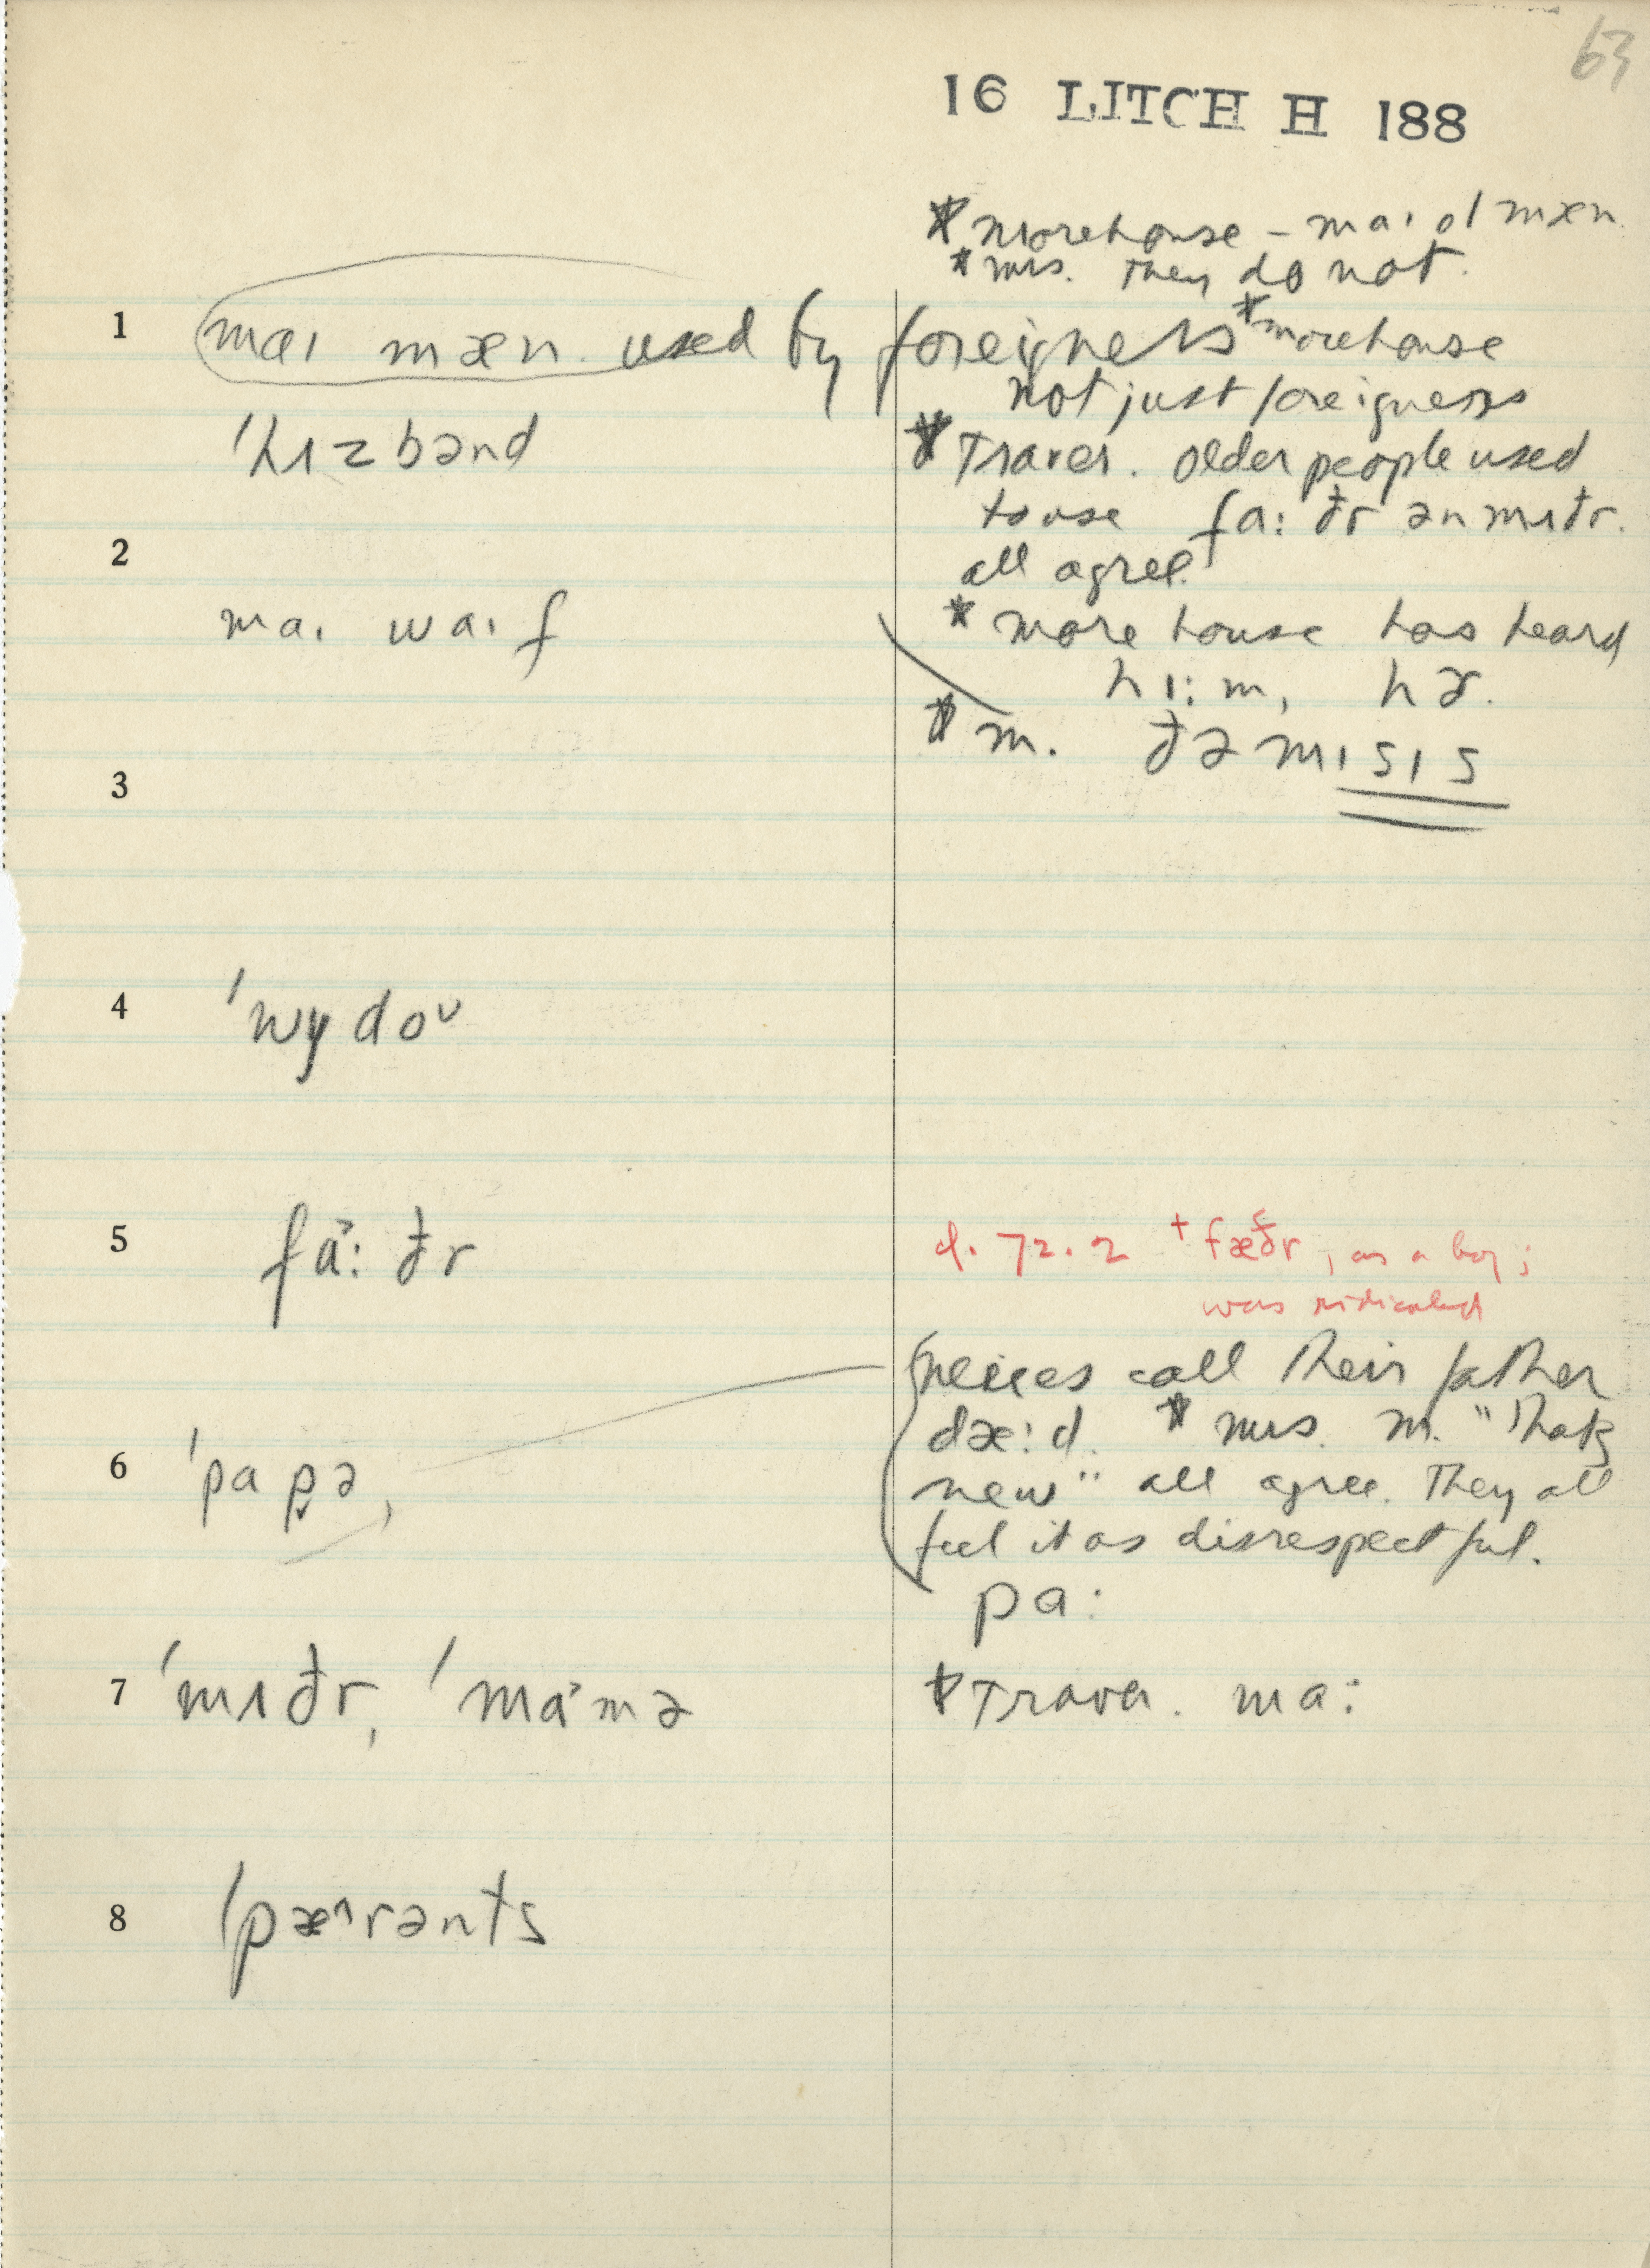 63
16 LITCH H 188
* morehouse - maɪ ol mæn
* mrs. They do not.
1 maɪ mæn. used by foreigners * morehouse
not just foreigners
'hʌzbənd
* Traver. older people used
to use fa: ðr ən mʌðr.
all agree.
2
maɪ waɪf
* morehouse has heard
hɪ:m, hɚ.
* m. ðə mɪsɪs
3
4 'wydoᴜ
5 fa˃: ðr
cf. 72.2 + fæðr, as a boy;
was ridiculed
neices call their father
dæ:d. * mrs. m. "That's
new" all agree. They all
feel it as disrespectful.
6 'papə,
pa:
7 'mʌðr, 'ma˃mə
* Traver. ma:
8 'pæ^rənts